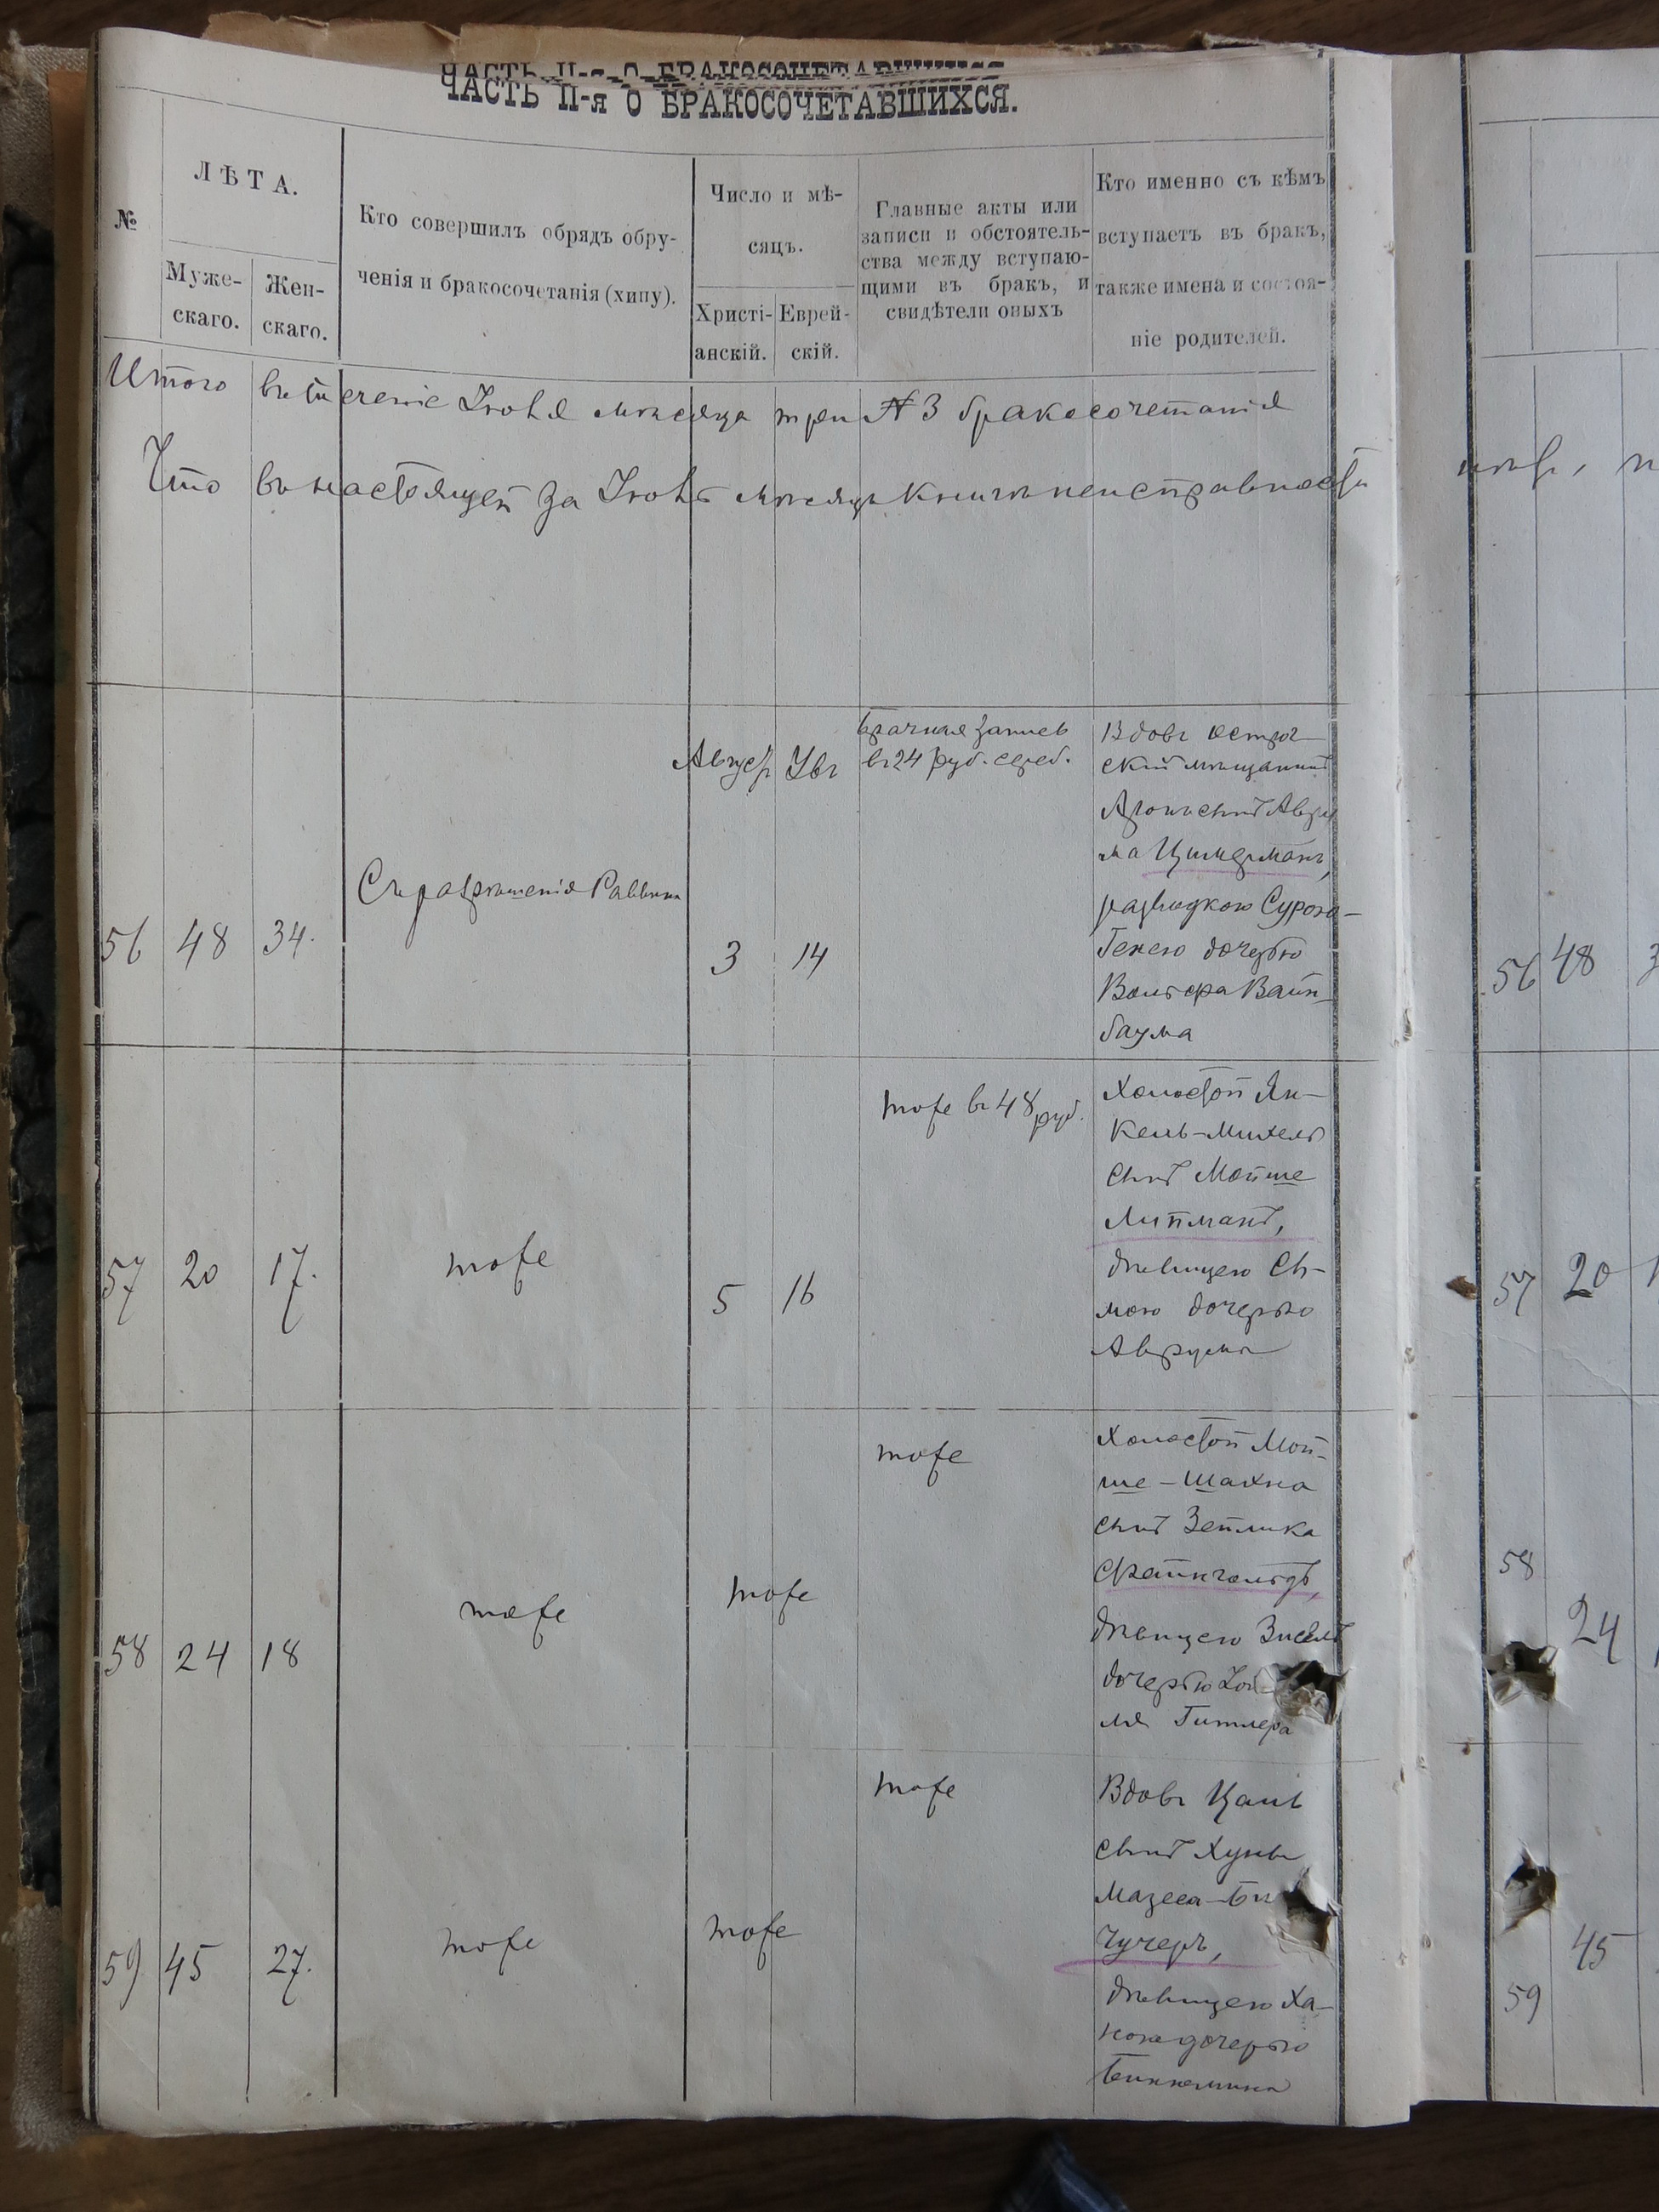 ЧАСТЬ II-я О БРАКОСОЧЕТАВШИХСЯ.
№
ЛѢТА.
Муже-
скаго.
Жен-
скаго.
Кто совершилъ обрядъ обру-
ченія и бракосочетанія (хипу).
Число и мѣ-
сяцъ.
Христі-
анскій.
Еврей-
скій.
Главные акты или
записи и обстоятель-
ства между вступаю-
щими въ бракъ, и
свидѣтели оныхъ
Кто именно съ кѣмъ
вступаетъ въ бракъ,
также имена и состоя-
ніе родителей.
Итого въ теченіе Іюля мѣсяца три № 3 бракосочетанія
Что въ настоящей за Іюль мѣсяцъ книгѣ неисправности
56
48
34.
Съ разрѣшенія Раввина
Август
3
Увъ
14
Брачная запись
въ 24 руб. сереб.
Вдовъ Острог-
скій мѣщанинъ
Аронъ сынъ Авру
ма Цимерманъ,
разводкою Сурою-
Генею дочерью
Вольфа Вайн-
баума
57
20
17.
тоже
5
16
тоже въ 48 руб.
Холостой Ян-
кель-Михель
сынъ Мойше
Липманъ,
дѣвицею Сы-
мою дочерью
Аврума
58
24
18
тоже
тоже
тоже
Холостой Мой-
ше-Шахна
сынъ Зейлика
Фрайнгольдъ,
дѣвицею Зисель
дочерью
ля Гитлера
59
45
27.
тоже
тоже
тоже
Вдовъ Цаль
сынъ Хуны
Чучеръ,
дѣвицею Ха-
ною дочерью
56 48
57 20
58
24
45
59